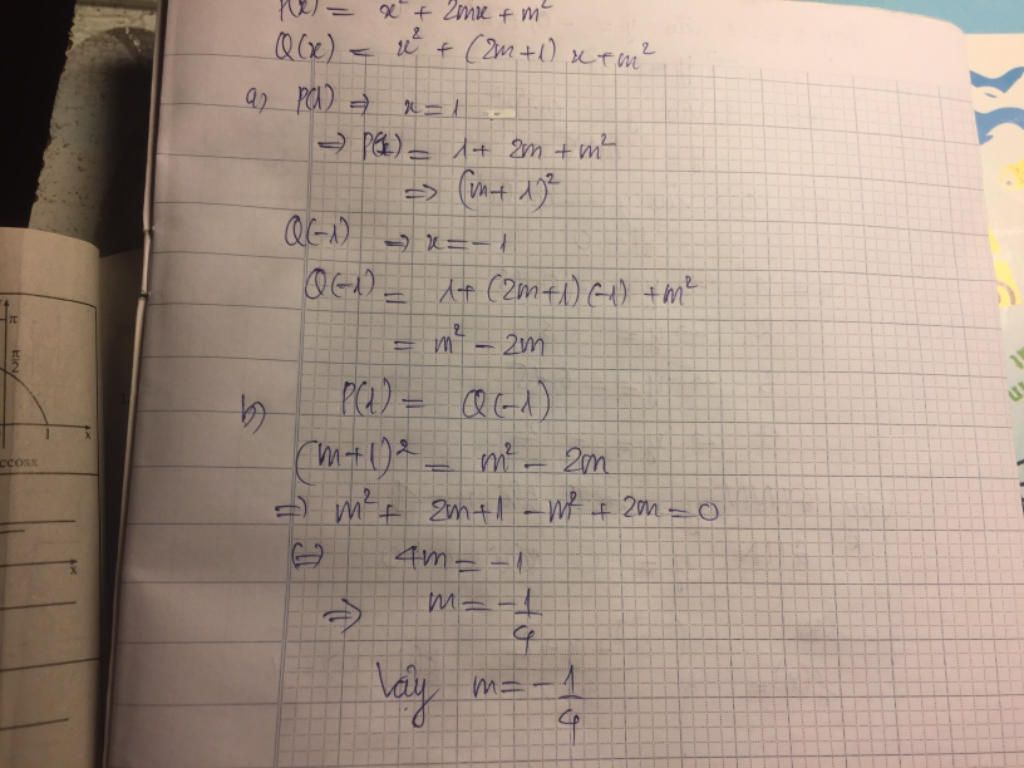 P(x) = x² + 2mx + m²
Q(x) = x² + (2m+1) x + m²
a) P(1) ⇒ x = 1
⇒ P(1) = 1 + 2m + m²
⇒ (m+1)²
Q(-1) ⇒ x = -1
Q(-1) = 1 + (2m+1)(-1) + m²
= m² - 2m
b) P(1) = Q(-1)
(m+1)² = m² - 2m
⇒ m² + 2m+1 - m² + 2m = 0
⇔ 4m = -1
⇒ m = -1/4
Vậy m = -1/4
π
π/2
1 x
ccosx
x